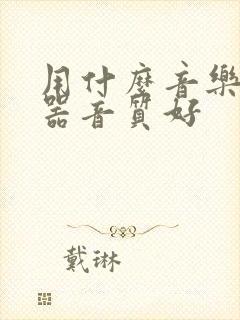 用什麼音樂
器音質好
戴琳